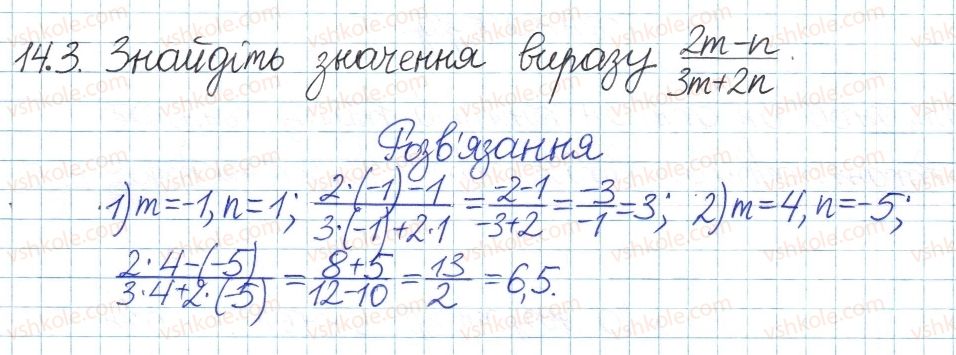 14.3. Знайдіть значення виразу (2m-n)/(3m+2n).
Розв'язання
1) m=-1, n=1; (2·(-1)-1)/(3·(-1)+2·1) = (-2-1)/(-3+2) = (-3)/(-1) = 3; 2) m=4, n=-5;
(2·4-(-5))/(3·4+2·(-5)) = (8+5)/(12-10) = 13/2 = 6,5.